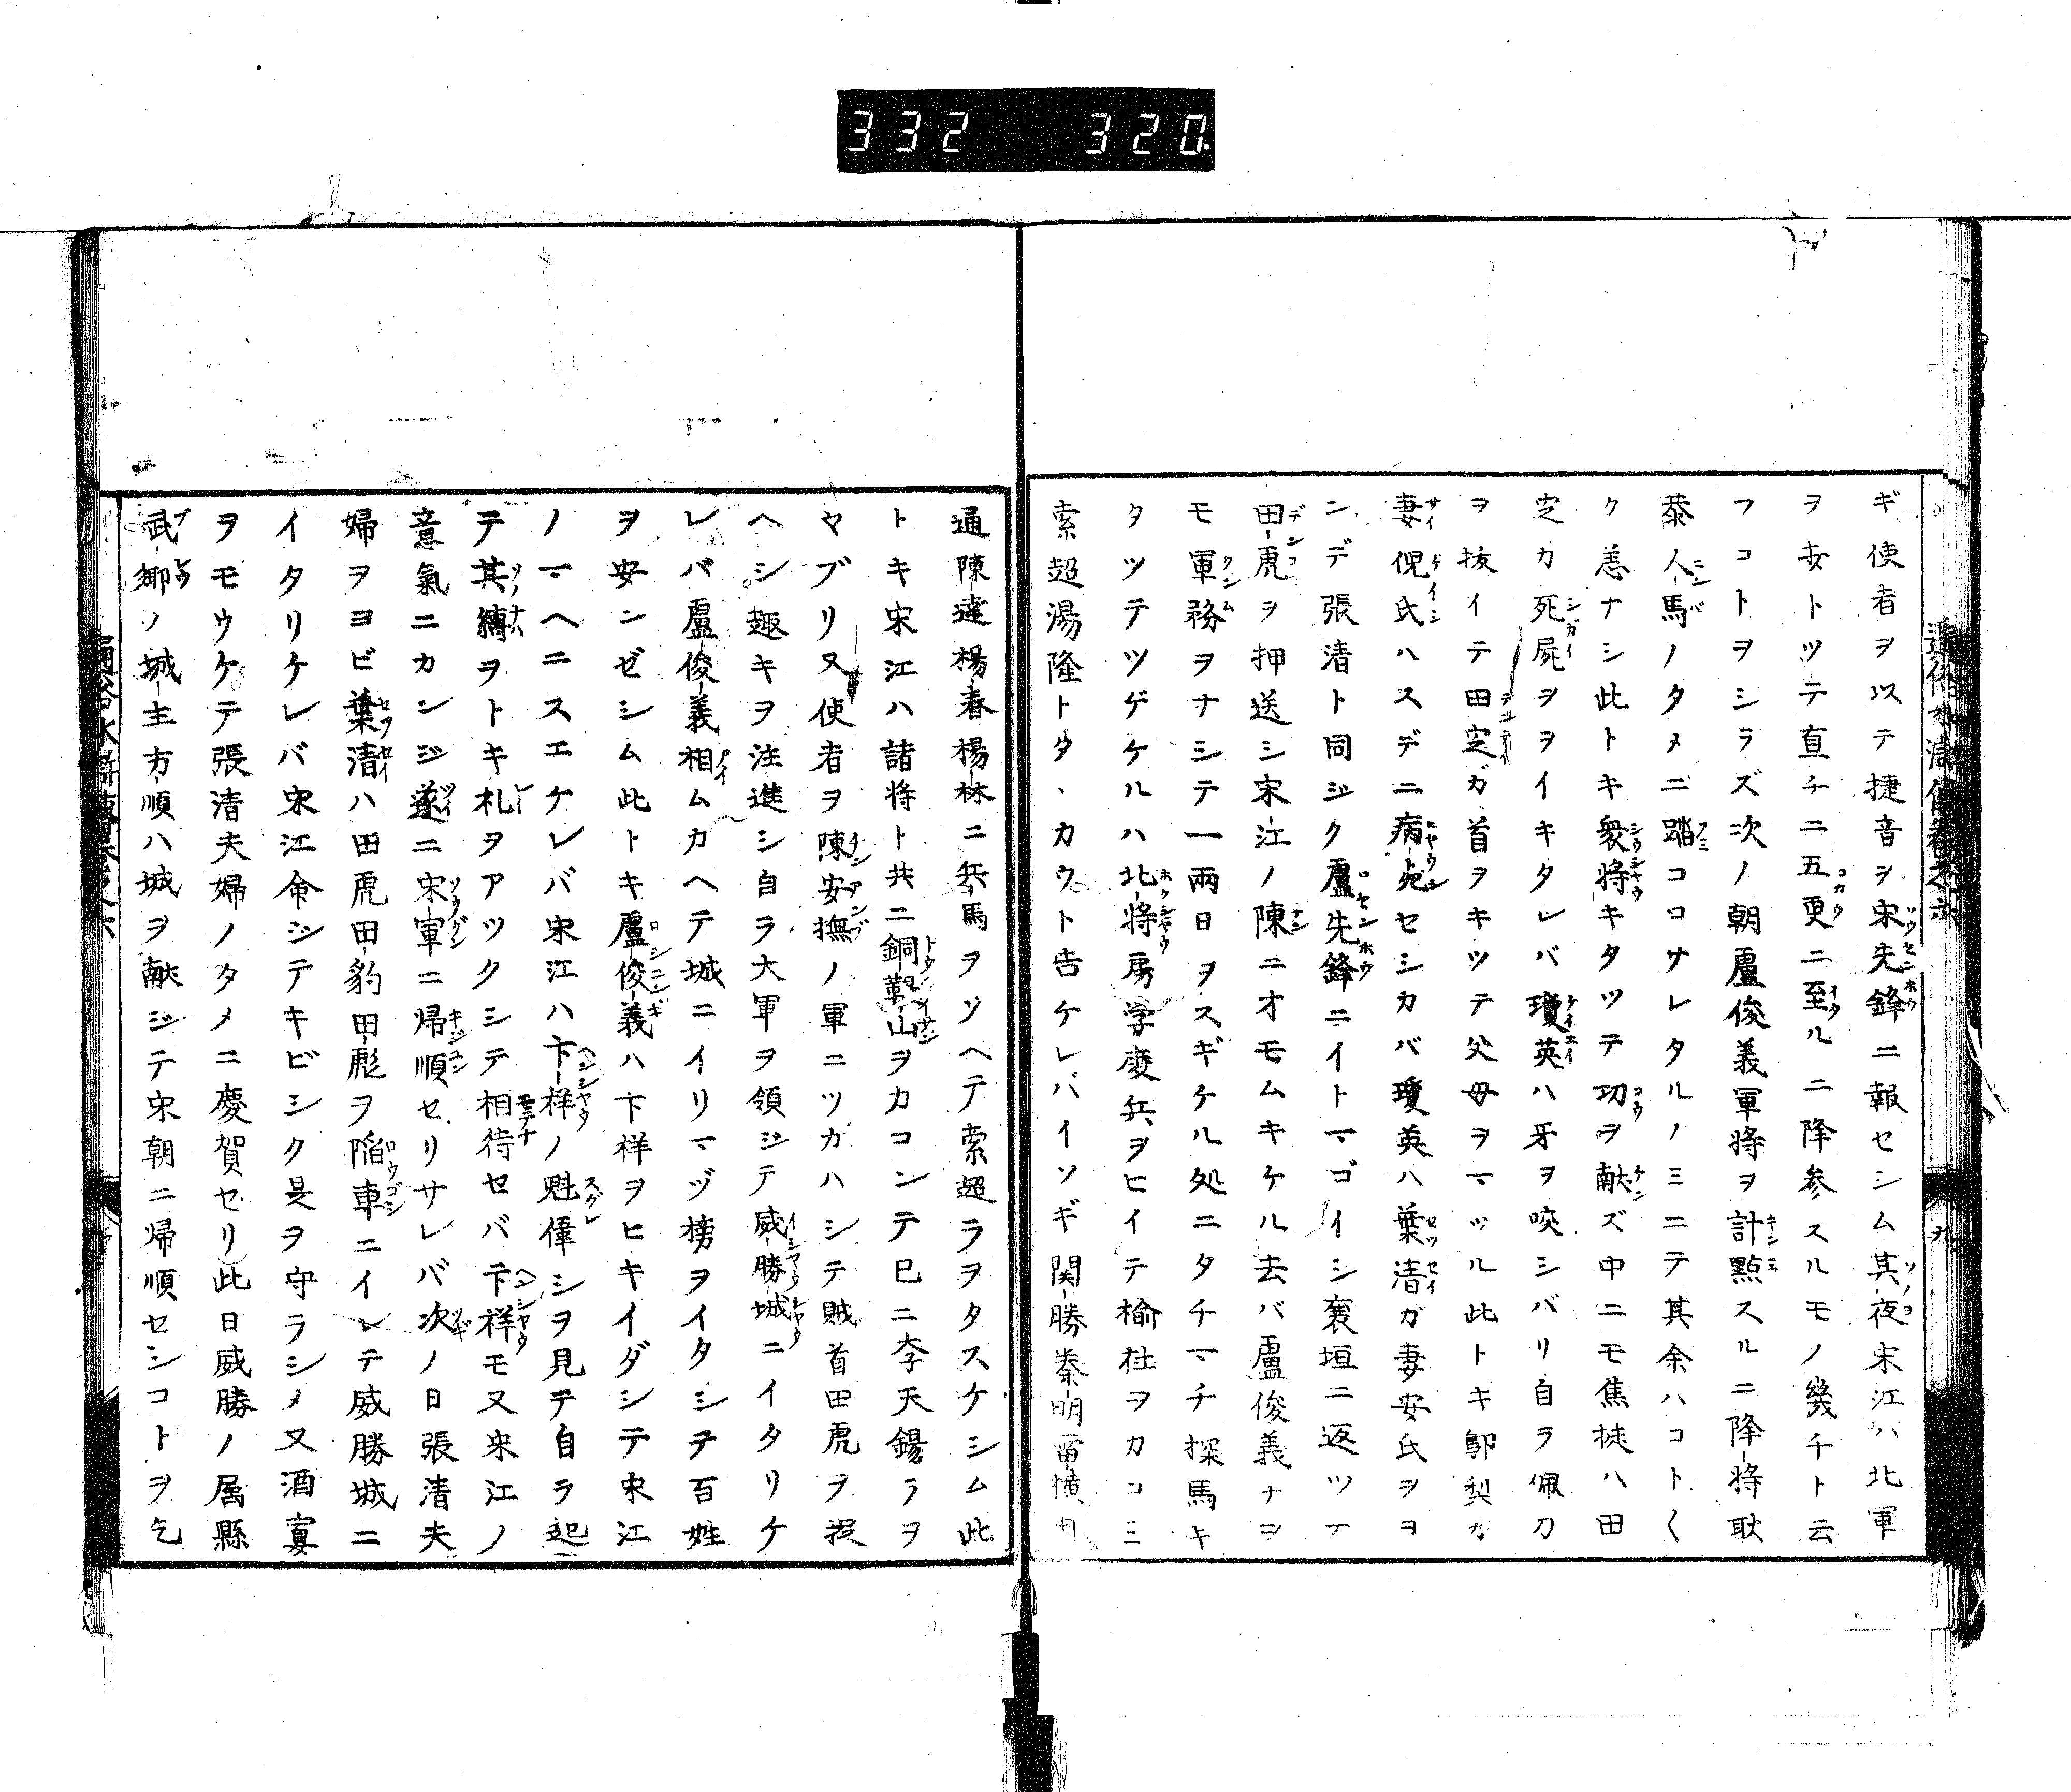 332 320
通俗水滸傳巻之六 九
ギ使者ヲ以テ捷音ヲ宋先鋒ニ報セシム其夜宋江ハ北軍
ヲ安トツテ直チニ五更ニ至ルニ降参スルモノ幾千ト云
フコトヲシラズ次ノ朝盧俊義軍将ヲ計點スルニ降将耿
恭人馬ノタメニ踏コロサレタルノミニテ其余ハコト〱
ク恙ナシ此トキ衆将キタツテ功ヲ献ズ中ニモ焦挺ハ田
定カ死屍ヲヲイキタレバ瓊英ハ牙ヲ咬シバリ自ラ佩刀
ヲ抜イテ田定ガ首ヲキツテ父母ヲマツル此トキ鄔梨カ
妻倪氏ハスデニ病死セシカバ瓊英ハ葉清ガ妻安氏ヲヨ
ンデ張清ト同ジク盧先鋒ニイトマゴイシ襄垣ニ返ツテ
田虎ヲ押送シ宋江ノ陳ニオモムキケル去バ盧俊義ナヲ
モ軍務ヲナシテ一兩日ヲスギケル処ニタチマチ探馬キ
タツテツゲケルハ北将房学度兵ヲヒイテ榆社ヲカコミ
索超湯隆トタヽカウト告ケレバイソギ関勝秦明雷横
通陳達楊春楊林ニ兵馬ヲソヘテ索超ラヲタスケシム此
トキ宋江ハ諸将ト共ニ銅鞮山ヲカコンテ已ニ李天錫ラヲ
ヤブリ又使者ヲ陳安撫ノ軍ニツカハシテ賊首田虎ヲ捉
ヘシ趣キヲ注進シ自ラ大軍ヲ領ジテ威勝城ニイタリケ
レバ盧俊義相ムカヘテ城ニイリマヅ榜ヲイタシテ百姓
ヲ安ンゼシム此トキ盧俊義ハ卞祥ヲヒキイダシテ宋江
ノマヘニスエケレバ宋江ハ卞祥ノ魁偉シヲ見テ自ラ起
テ其縛ヲトキ礼ヲアツクシテ相待セバ卞祥モ又宋江ノ
意氣ニカンジ遂ニ宋軍ニ帰順セリサレバ次ノ日張清夫
婦ヲヨビ葉清ハ田虎田豹田彪ヲ陷車ニイレテ威勝城ニ
イタリケレバ宋江命ジテキビシク是ヲ守ラシメ又酒宴
ヲモウケテ張清夫婦ノタメニ慶賀セリ此日威勝ノ属縣
武郷ノ城主方順ハ城ヲ献ジテ宋朝ニ帰順センコトヲ乞
通俗水滸傳巻之六 十